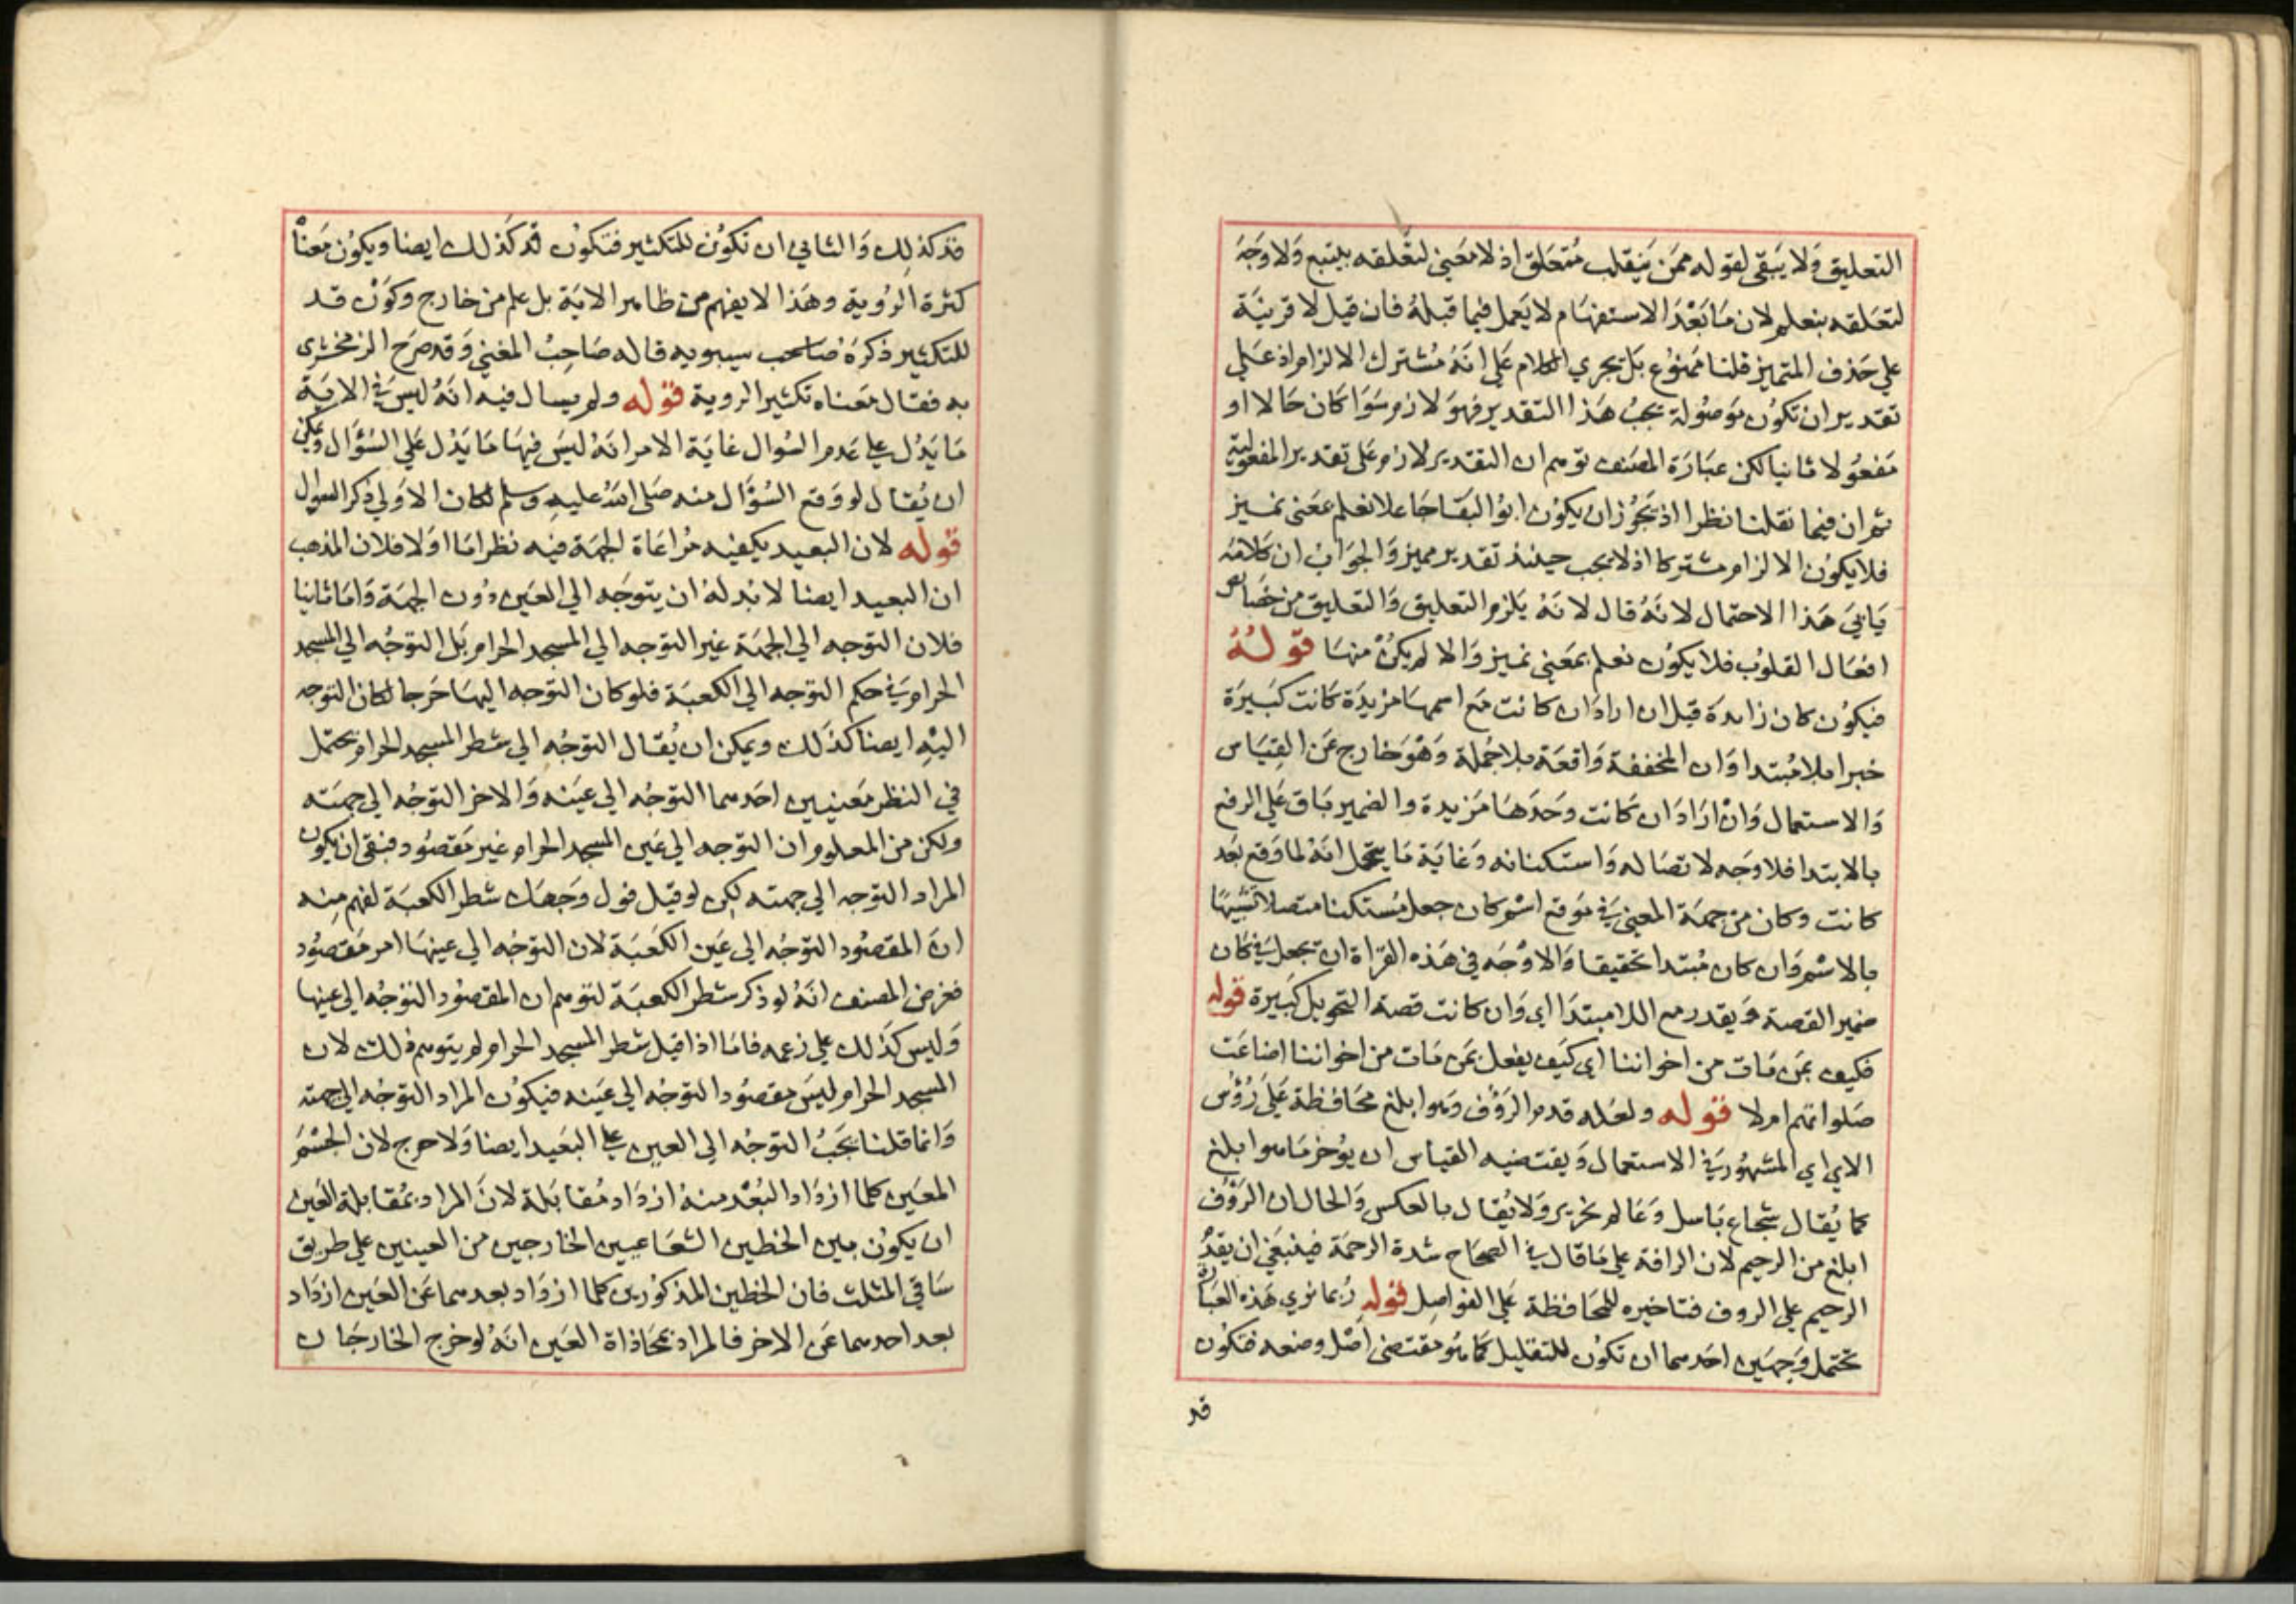 التعليق ولا يبقى لقوله ممن ينقلب متعلق اذ لا معني لتعلقه بيتبع ولا وجه
لتعلقه بنعلم لان ما بعد الاستفهام لا يعمل فيما قبله فان قيل لا قرينة
علي حذف المتميز قلنا ممنوع بل تجري الكلام علي انه مشترك الالزام اذ علي
تقدير ان تكون موصولة يجب هذا التقدير فهو لازم سوا كان حالا او
مفعولا ثانيا لكن عبارة المصنف توهم ان التقدير لازم علي تقدير المفعولية
ثم ان فيما نقلنا نظرا اذ يجوز ان يكون ابو البقا جاعلا نعلم بمعنى نميز
فلا يكون الالزام مشتركا اذ لا يجب حينئذ تقدير مميز والجواب ان كلامه
يابي هذا الاحتمال لانه قال لانه يلزم التعليق والتعليق من خصايص
افعال القلوب فلا يكون نعلم بمعني نميز والا لم يكن منها قوله
فيكون كان زايدة قيل ان اراد ان كانت مع اسمها مزيدة كانت كبيرة
خبرا بلا مبتدا وان المخففة واقعة بلا جملة وهو خارج عن القياس
والاستعمال وان اراد ان كانت وحدها مزيدة والضمير باق علي الرفع
بالابتدا فلا وجه لاتصاله واستكنانه وغاية ما يتمحل انه لما وقع بعد
كانت وكان من جهة المعني في موقع اسم كان جعل مستكنا متصلا تشبيها
بالاسم وان كان مبتدا تحقيقا والاوجه في هذه القراة ان تجعل في كان
ضمير القصة ويقدر مع اللام مبتدا اي وان كانت قصة التحويل كبيرة قوله
فكيف بمن مات من اخواننا اي كيف يفعل بمن مات من اخواننا اضاعت
صلواتهم ام لا قوله ولعله قدم الرؤف وهو ابلغ محافظة علي رؤس
الاي اي المشهور في الاستعمال ويقتضيه القياس ان يوخر ما هو ابلغ
كما يقال شجاع باسل وعالم نحرير ولا يقال بالعكس والحال ان الرؤف
ابلغ من الرحيم لان الرافة علي ما قال في الصحاح شدة الرحمة فينبغي ان يقدم
الرحيم علي الروف فتاخيره للمحافظة علي الفواصل قوله ربما نري هذه العبارة
تحتمل وجهين احدهما ان تكون للتقليل كما هو مقتضى اصل وضعه فتكون
قد
قد كذلك والثاني ان تكون للتكثير فتكون قد كذلك ايضا ويكون معناه
كثرة الروية وهذا لا يفهم من ظاهر الاية بل علم من خارج وكون قد
للتكثير ذكره صاحب سيبويه قاله صاحب المغني وقد صرح الزمخشري
به فقال معناه تكثير الروية قوله ولم يسال فيه انه ليس في الاية
ما يدل علي عدم السوال غاية الامر انه ليس فيها ما يدل علي السؤال ويمكن
ان يقال لو وقع السؤال منه صلى الله عليه وسلم لكان الاولي ذكر السوال
قوله لان البعيد يكفيه مراعاة الجهة فيه نظر اما اولا فلان المذهب
ان البعيد ايضا لا بد له ان يتوجه الي العين دون الجهة واما ثانيا
فلان التوجه الي الجهة غير التوجه الي المسجد الحرام بل التوجه الي المسجد
الحرام في حكم التوجه الي الكعبة فلو كان التوجه اليها حرجا لكان التوجه
اليه ايضا كذلك ويمكن ان يقال التوجه الي شطر المسجد الحرام يحتمل
في النظر معنيين احدهما التوجه الي عينه والاخر التوجه الي جهته
ولكن من المعلوم ان التوجه الي عين المسجد الحرام غير مقصود فبقي ان يكون
المراد التوجه الي جهته لكن لو قيل فول وجهك شطر الكعبة لفهم منه
ان المقصود التوجه الي عين الكعبة لان التوجه الي عينها امر مقصود
فغرض المصنف انه لو ذكر شطر الكعبة لتوهم ان المقصود التوجه الي عينها
وليس كذلك علي زعمه فاما اذا قيل شطر المسجد الحرام لم يتوهم ذلك لان
المسجد الحرام ليس مقصود التوجه الي عينه فيكون المراد التوجه الي جهته
وانما قلنا يجب التوجه الي العين علي البعيد ايضا ولا حرج لان الجسم
المعين كلما ازداد البعد منه ازداد مقابلة لان المراد بمقابلة العين
ان يكون بين الخطين الشعاعيين الخارجين من العينين علي طريق
ساقي المثلث فان الخطين المذكورين كلما ازداد بعدهما عن العين ازداد
بعد احدهما عن الاخر فالمراد بمحاذاة العين انه لو خرج الخارجان